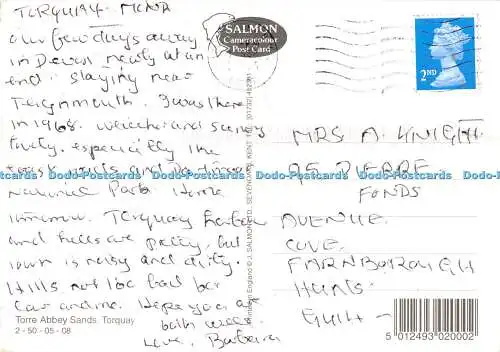 TORQUAY - MONDAY
Our few days away
in Devon nearly at an
end - staying near
Teignmouth. I was there
in 1968. Weather and scenery
lovely, especially the
coast and Dartmoor
National Park. Home
tomorrow. Torquay harbour
and hills are pretty, but
town is noisy and dirty.
Hills not too bad for
car and me. Hope you are
both well.
Love, Barbara
Torre Abbey Sands, Torquay
2 - 50 - 05 - 08
SALMON
Cameracolour
Post Card
2ND
Printed in England © J. SALMON LTD., SEVENOAKS, KENT
MRS A. KNIGHT
95 PIERRE
FONDS
AVENUE
COVE
FARNBOROUGH
HANTS
GU14
5 012493 020002
Dodo-Postcards Dodo-Postcards Dodo-Postcards Dodo-Postcards